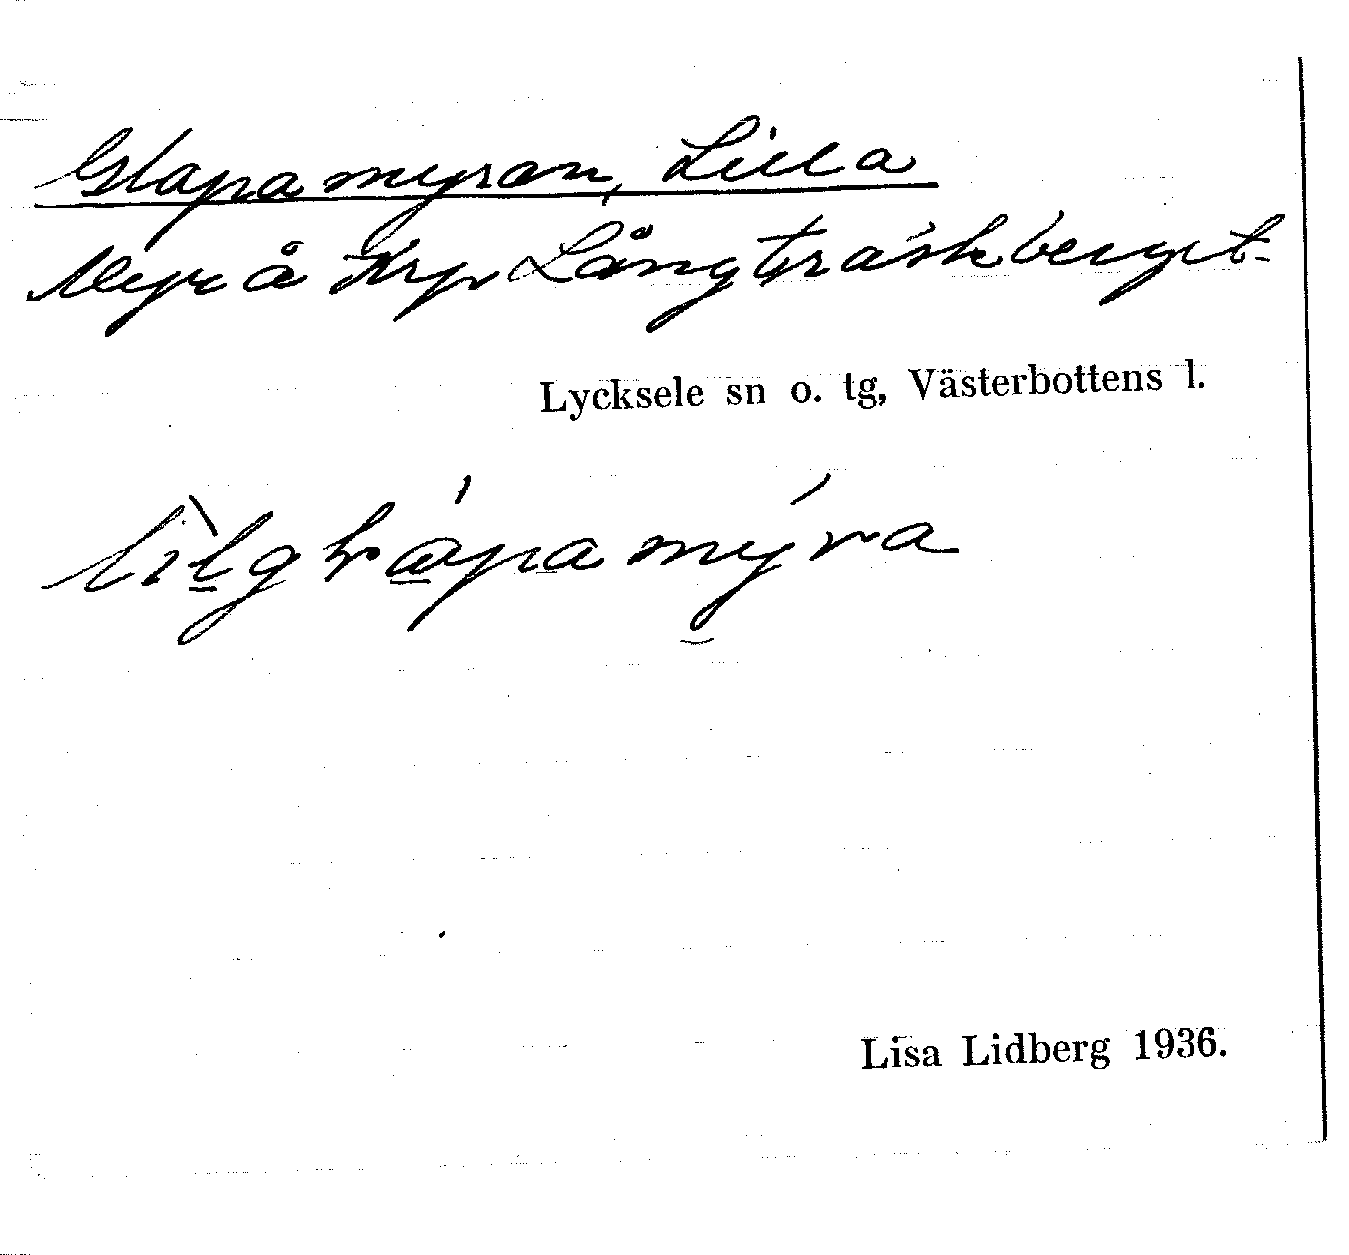 Glapamyran, Lilla
Myr å Krp Långträskberget.
Lycksele sn o. tg, Västerbottens l.
Lisa Lidberg 1936.